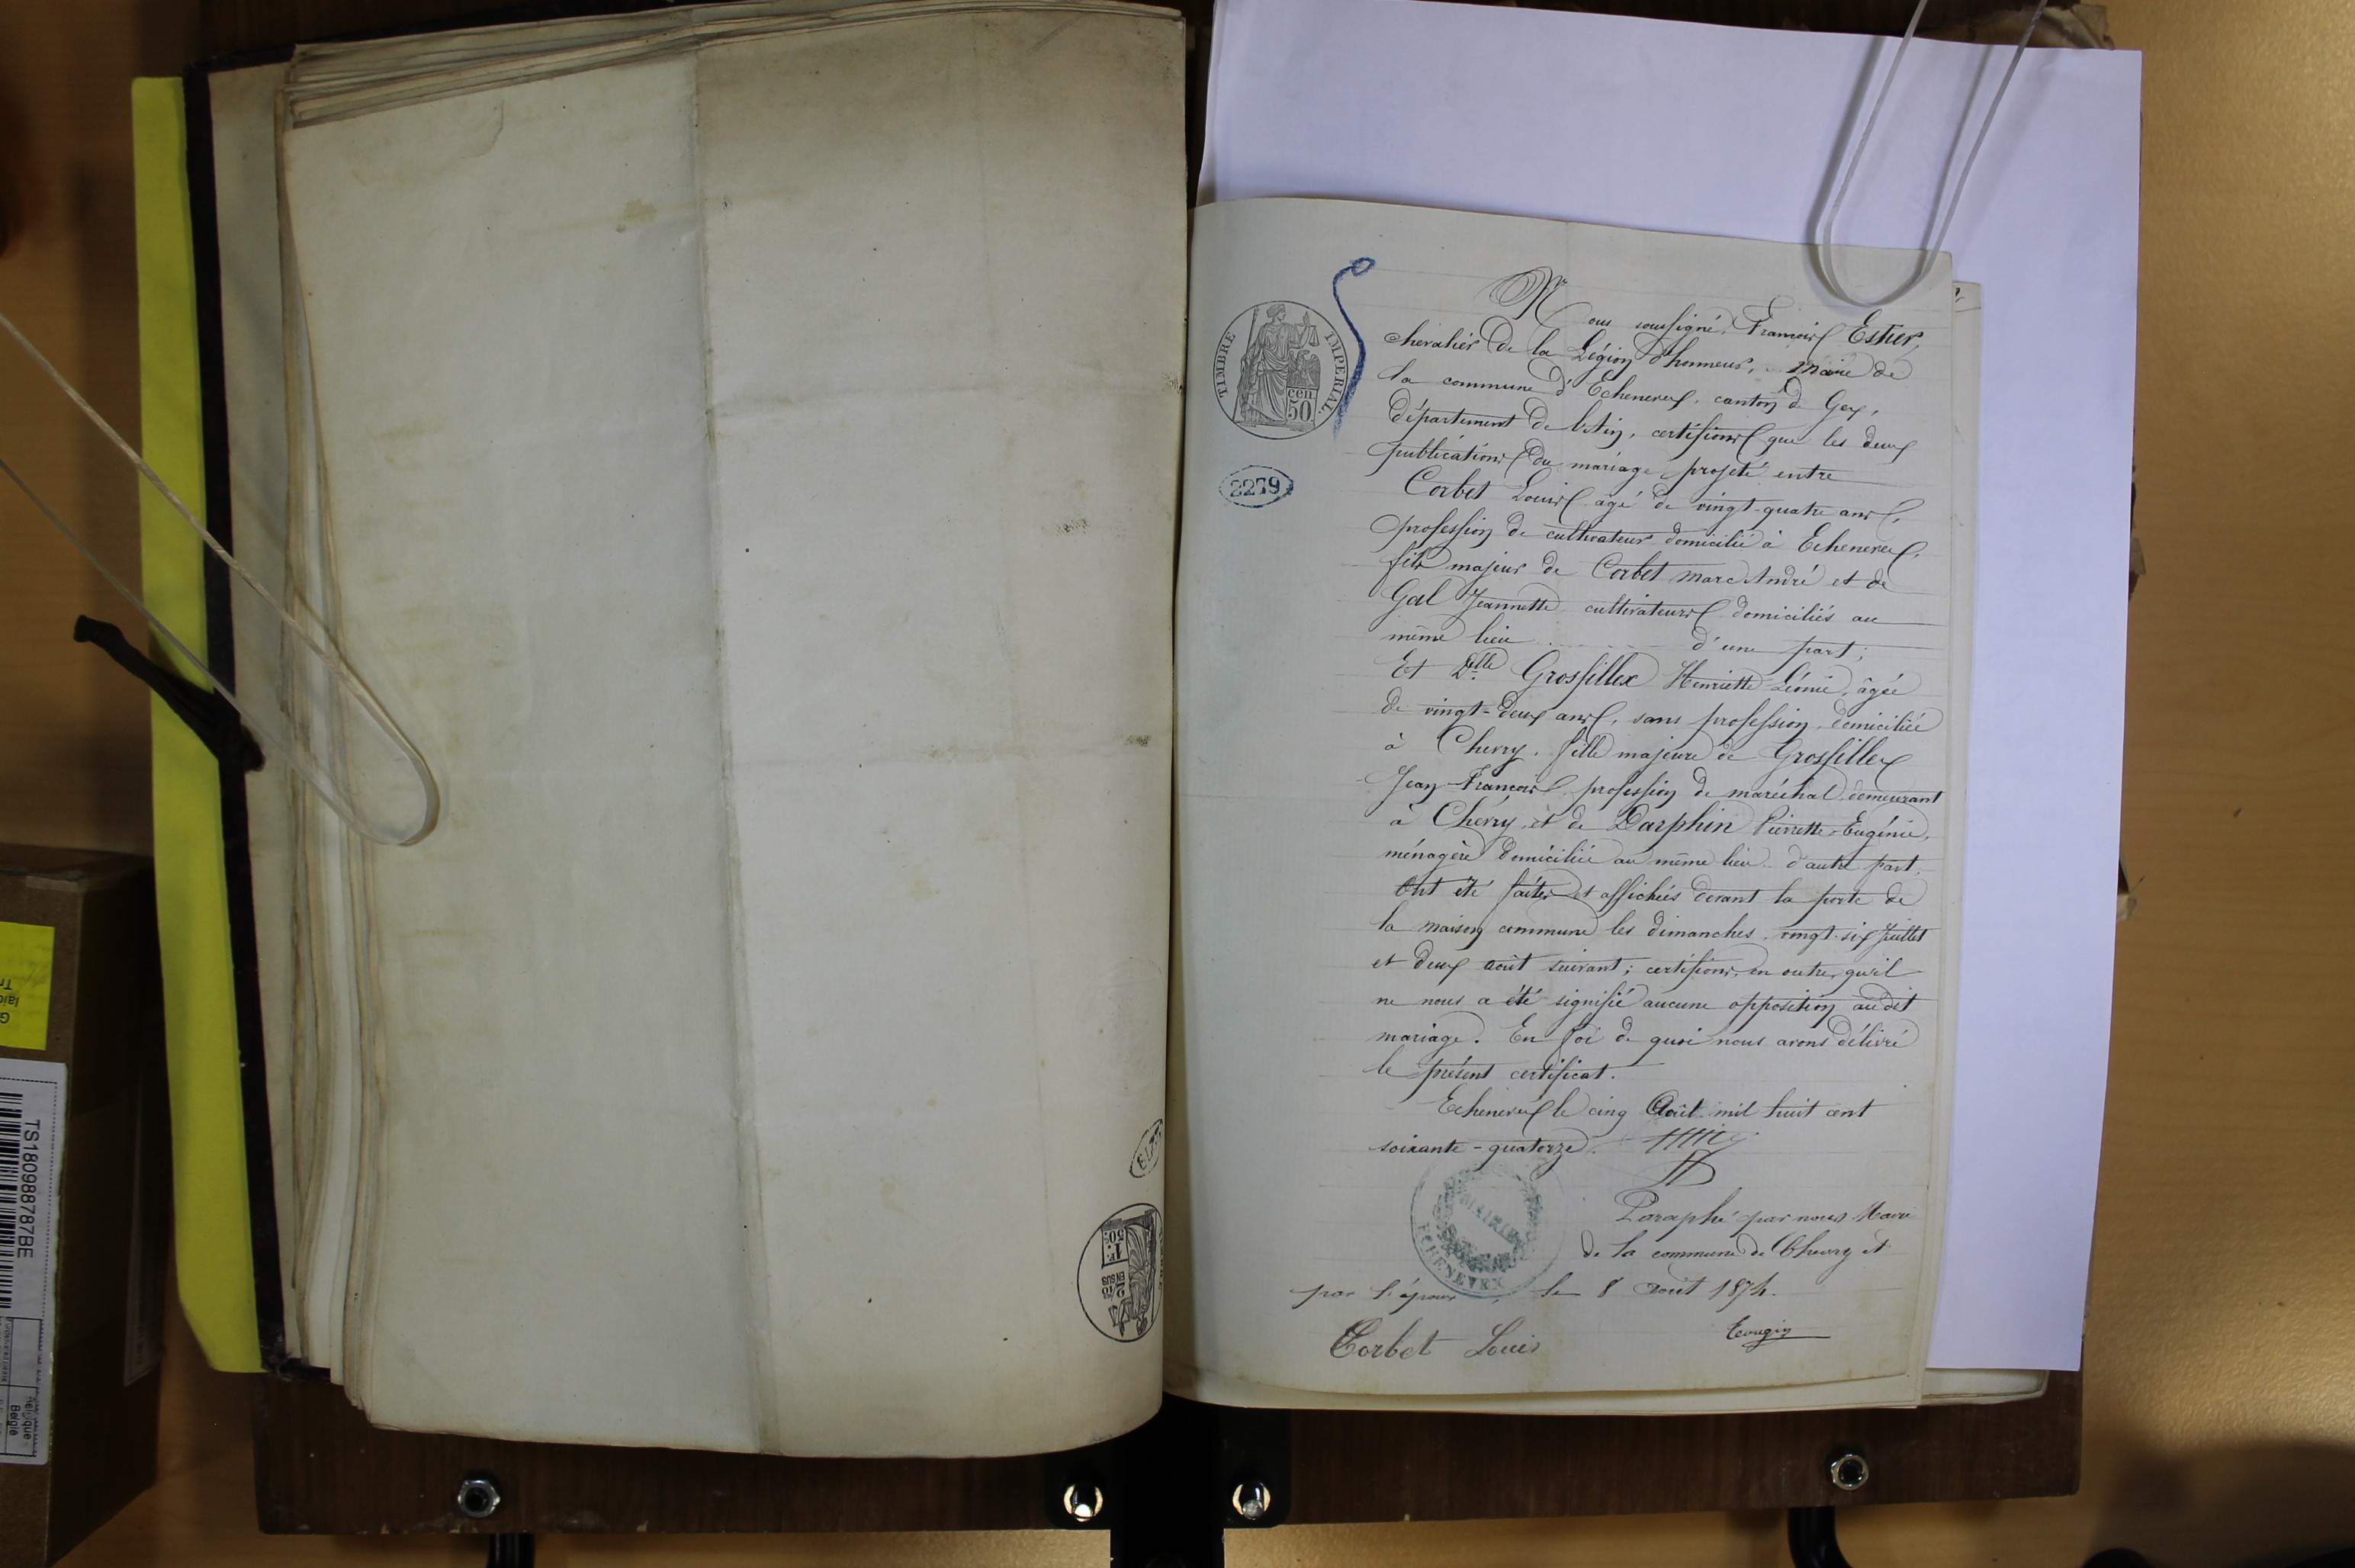 Nous soussigné, François Estier,
chevalier de la Légion d'honneur, Maire de
la commune d'Echenevex, canton de Gex,
département de l'Ain, certifions que les deux
publications du mariage projeté entre
Corbet Louis âgé de vingt-quatre ans,
profession de cultivateur domicilié à Echenevex,
fils majeur de Corbet Marc André et de
Gal Jeannette cultivateurs domiciliés au
même lieu d'une part;
Et Delle Grosfillex Henriette Léonie, âgée
de vingt-deux ans, sans profession, domiciliée
à Chevry, fille majeure de Grosfillex
Jean-François profession de maréchal demeurant
à Chevry, et de Darphin Pierrette-Eugénie,
ménagère domiciliée au même lieu d'autre part,
Ont été faites et affichées devant la porte de
la maison commune les dimanches vingt-six Juillet
et deux août suivant; certifions, en outre, qu'il
ne nous a été signifié aucune opposition audit
mariage. En foi de quoi nous avons délivré
le présent certificat.
Echenevex le cinq Août mil huit cent
soixante-quatorze.
Paraphé par nous Maire
de la commune de Chevry et
par l'époux, le 8 août 1874.
Corbet Louis
TIMBRE IMPERIAL
50 cen
2279
MAIRIE
ECHENEVEX
1F. 50C.
2/10 EN SUS
TS180988787BE
Belgique
België